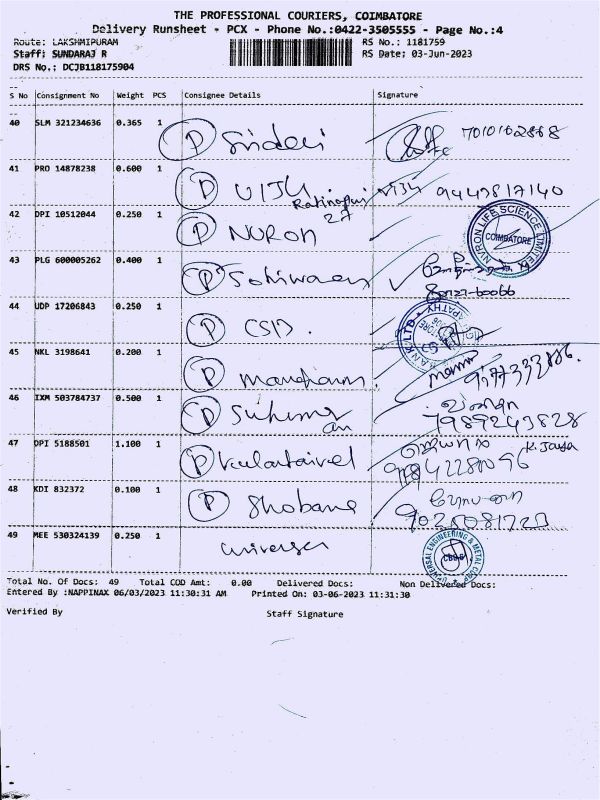 THE PROFESSIONAL COURIERS, COIMBATORE
Delivery Runsheet - PCX - Phone No.:0422-3505555 - Page No.:4
Route: LAKSHMIPURAM RS No.: 1181759
Staff: SUNDARAJ R RS Date: 03-Jun-2023
DRS No.: DCJB118175904
S No Consignment No Weight PCS Consignee Details Signature
40 SLM 321234636 0.365 1 P Sridevi 7010102868
41 PRO 14878238 0.600 1 P VIJU viju 9442817140
Ratinapuri
27
42 DPI 10512044 0.250 1 P NURON
NURON LIFE SCIENCE LIMITED COIMBATORE
43 PLG 600005262 0.400 1 P
44 UDP 17206843 0.250 1 P CSID.
45 NKL 3198641 0.200 1 P
46 IXM 503784737 0.500 1 P
7989243828
47 DPI 5188501 1.100 1 P K. Jaya
48 KDI 832372 0.100 1 P Shobana
9025081720
49 MEE 530324139 0.250 1 universal
UNIVERSAL ENGINEERING & METAL CORP
Total No. Of Docs: 49 Total COD Amt: 0.00 Delivered Docs: Non Delivered Docs:
Entered By :NAPPINAX 06/03/2023 11:30:31 AM Printed On: 03-06-2023 11:31:30
Verified By Staff Signature